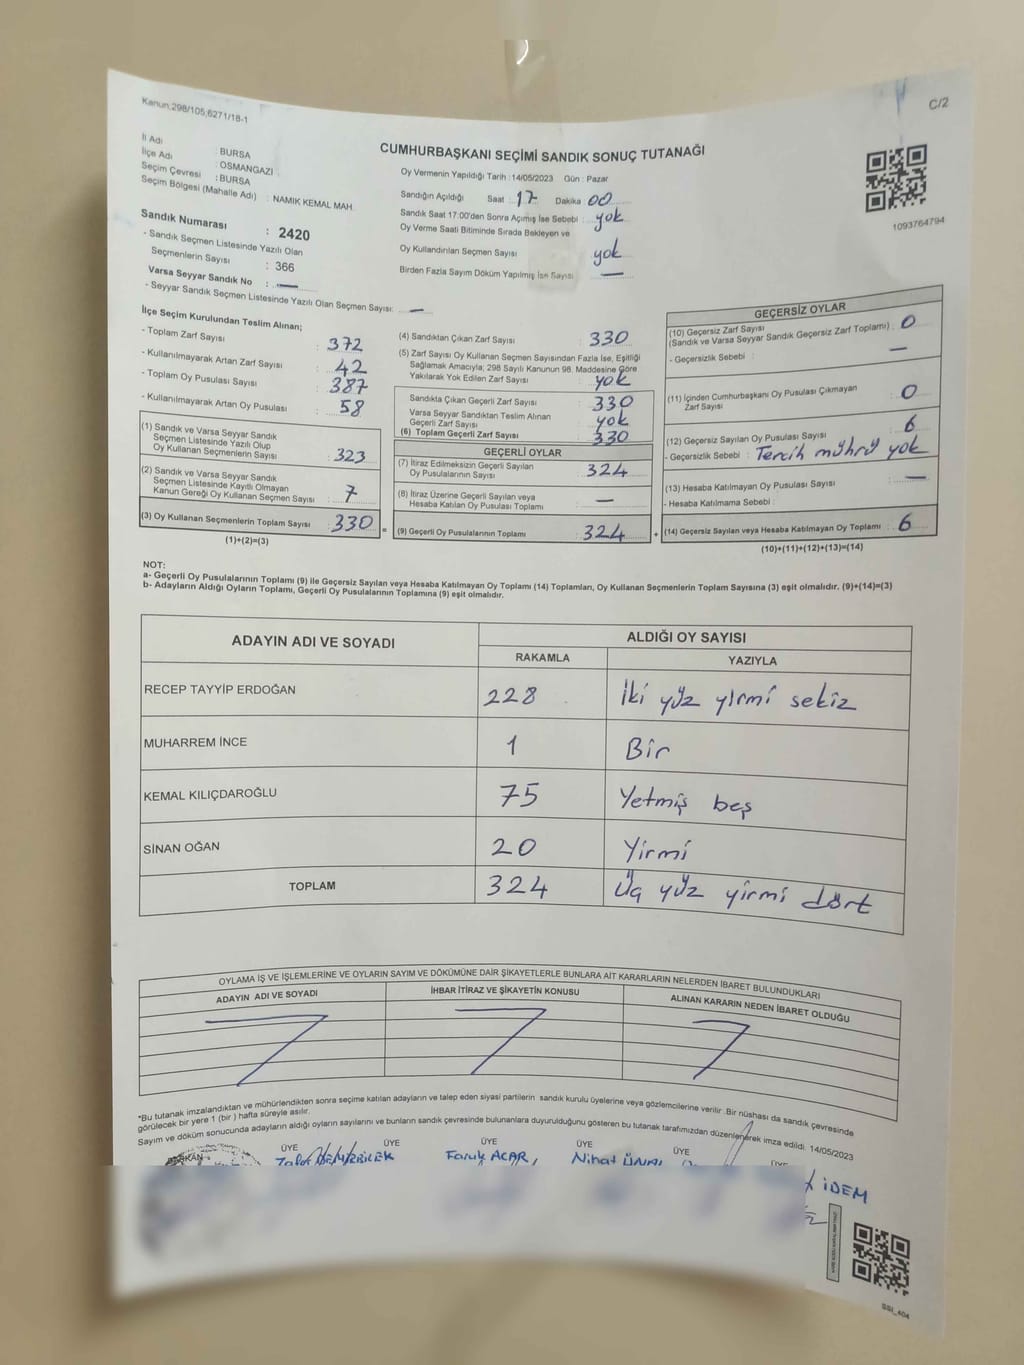 Kanun;298/105,6271/18-1
C/2
CUMHURBAŞKANI SEÇİMİ SANDIK SONUÇ TUTANAĞI
İl Adı : BURSA
İlçe Adı : OSMANGAZİ
Seçim Çevresi : BURSA
Seçim Bölgesi (Mahalle Adı) : NAMIK KEMAL MAH.
Sandık Numarası : 2420
- Sandık Seçmen Listesinde Yazılı Olan
Seçmenlerin Sayısı : 366
Varsa Seyyar Sandık No : —
- Seyyar Sandık Seçmen Listesinde Yazılı Olan Seçmen Sayısı: —
Oy Vermenin Yapıldığı Tarih :14/05/2023 Gün : Pazar
Sandığın Açıldığı Saat : 17 Dakika : 00
Sandık Saat 17:00'den Sonra Açımış İse Sebebi : yok
Oy Verme Saati Bitiminde Sırada Bekleyen ve
Oy Kullandırılan Seçmen Sayısı yok
Birden Fazla Sayım Döküm Yapılmış İse Sayısı —
1093764794
İlçe Seçim Kurulundan Teslim Alınan;
- Toplam Zarf Sayısı : 372
- Kullanılmayarak Artan Zarf Sayısı : 42
- Toplam Oy Pusulası Sayısı : 387
- Kullanılmayarak Artan Oy Pusulası : 58
(1) Sandık ve Varsa Seyyar Sandık
Seçmen Listesinde Yazılı Olup
Oy Kullanan Seçmenlerin Sayısı : 323
(2) Sandık ve Varsa Seyyar Sandık
Seçmen Listesinde Kayıtlı Olmayan
Kanun Gereği Oy Kullanan Seçmen Sayısı : 7
(3) Oy Kullanan Seçmenlerin Toplam Sayısı : 330 =
(1)+(2)=(3)
(4) Sandıktan Çıkan Zarf Sayısı : 330
(5) Zarf Sayısı Oy Kullanan Seçmen Sayısından Fazla İse, Eşitliği
Sağlamak Amacıyla; 298 Sayılı Kanunun 98. Maddesine Göre
Yakılarak Yok Edilen Zarf Sayısı : yok
Sandıkta Çıkan Geçerli Zarf Sayısı : 330
Varsa Seyyar Sandıktan Teslim Alınan
Geçerli Zarf Sayısı : yok
(6) Toplam Geçerli Zarf Sayısı : 330
GEÇERLİ OYLAR
(7) İtiraz Edilmeksizin Geçerli Sayılan
Oy Pusulalarının Sayısı : 324
(8) İtiraz Üzerine Geçerli Sayılan veya
Hesaba Katılan Oy Pusulası Toplamı : —
(9) Geçerli Oy Pusulalarının Toplamı : 324 +
GEÇERSİZ OYLAR
(10) Geçersiz Zarf Sayısı
(Sandık ve Varsa Seyyar Sandık Geçersiz Zarf Toplamı) : 0
- Geçersizlik Sebebi : —
(11) İçinden Cumhurbaşkanı Oy Pusulası Çıkmayan
Zarf Sayısı : 0
(12) Geçersiz Sayılan Oy Pusulası Sayısı : 6
- Geçersizlik Sebebi : Tercih mührü yok
(13) Hesaba Katılmayan Oy Pusulası Sayısı : —
- Hesaba Katılmama Sebebi :
(14) Geçersiz Sayılan veya Hesaba Katılmayan Oy Toplamı : 6
(10)+(11)+(12)+(13)=(14)
NOT:
a- Geçerli Oy Pusulalarının Toplamı (9) ile Geçersiz Sayılan veya Hesaba Katılmayan Oy Toplamı (14) Toplamları, Oy Kullanan Seçmenlerin Toplam Sayısına (3) eşit olmalıdır. (9)+(14)=(3)
b- Adayların Aldığı Oyların Toplamı, Geçerli Oy Pusulalarının Toplamına (9) eşit olmalıdır.
ADAYIN ADI VE SOYADI
ALDIĞI OY SAYISI
RAKAMLA YAZIYLA
RECEP TAYYİP ERDOĞAN 228 İki yüz yirmi sekiz
MUHARREM İNCE 1 Bir
KEMAL KILIÇDAROĞLU 75 Yetmiş beş
SİNAN OĞAN 20 Yirmi
TOPLAM 324 Üç yüz yirmi dört
OYLAMA İŞ VE İŞLEMLERİNE VE OYLARIN SAYIM VE DÖKÜMÜNE DAİR ŞİKAYETLERLE BUNLARA AİT KARARLARIN NELERDEN İBARET BULUNDUKLARI
ADAYIN ADI VE SOYADI İHBAR İTİRAZ VE ŞİKAYETİN KONUSU ALINAN KARARIN NEDEN İBARET OLDUĞU
*Bu tutanak imzalandıktan ve mühürlendikten sonra seçime katılan adayların ve talep eden siyasi partilerin sandık kurulu üyelerine veya gözlemcilerine verilir .Bir nüshası da sandık çevresinde
görülecek bir yere 1 (bir ) hafta süreyle asılır.
Sayım ve döküm sonucunda adayların aldığı oyların sayılarını ve bunların sandık çevresinde bulunanlara duyurulduğunu gösteren bu tutanak tarafımızdan düzenlenerek imza edildi. 14/05/2023
BAŞKAN ÜYE ÜYE ÜYE ÜYE ÜYE ÜYE
DEMİRBİLEK Faruk ACAR Nihat ÜNAL
İDEM
SSI_404